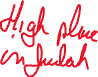 High place
in Judah